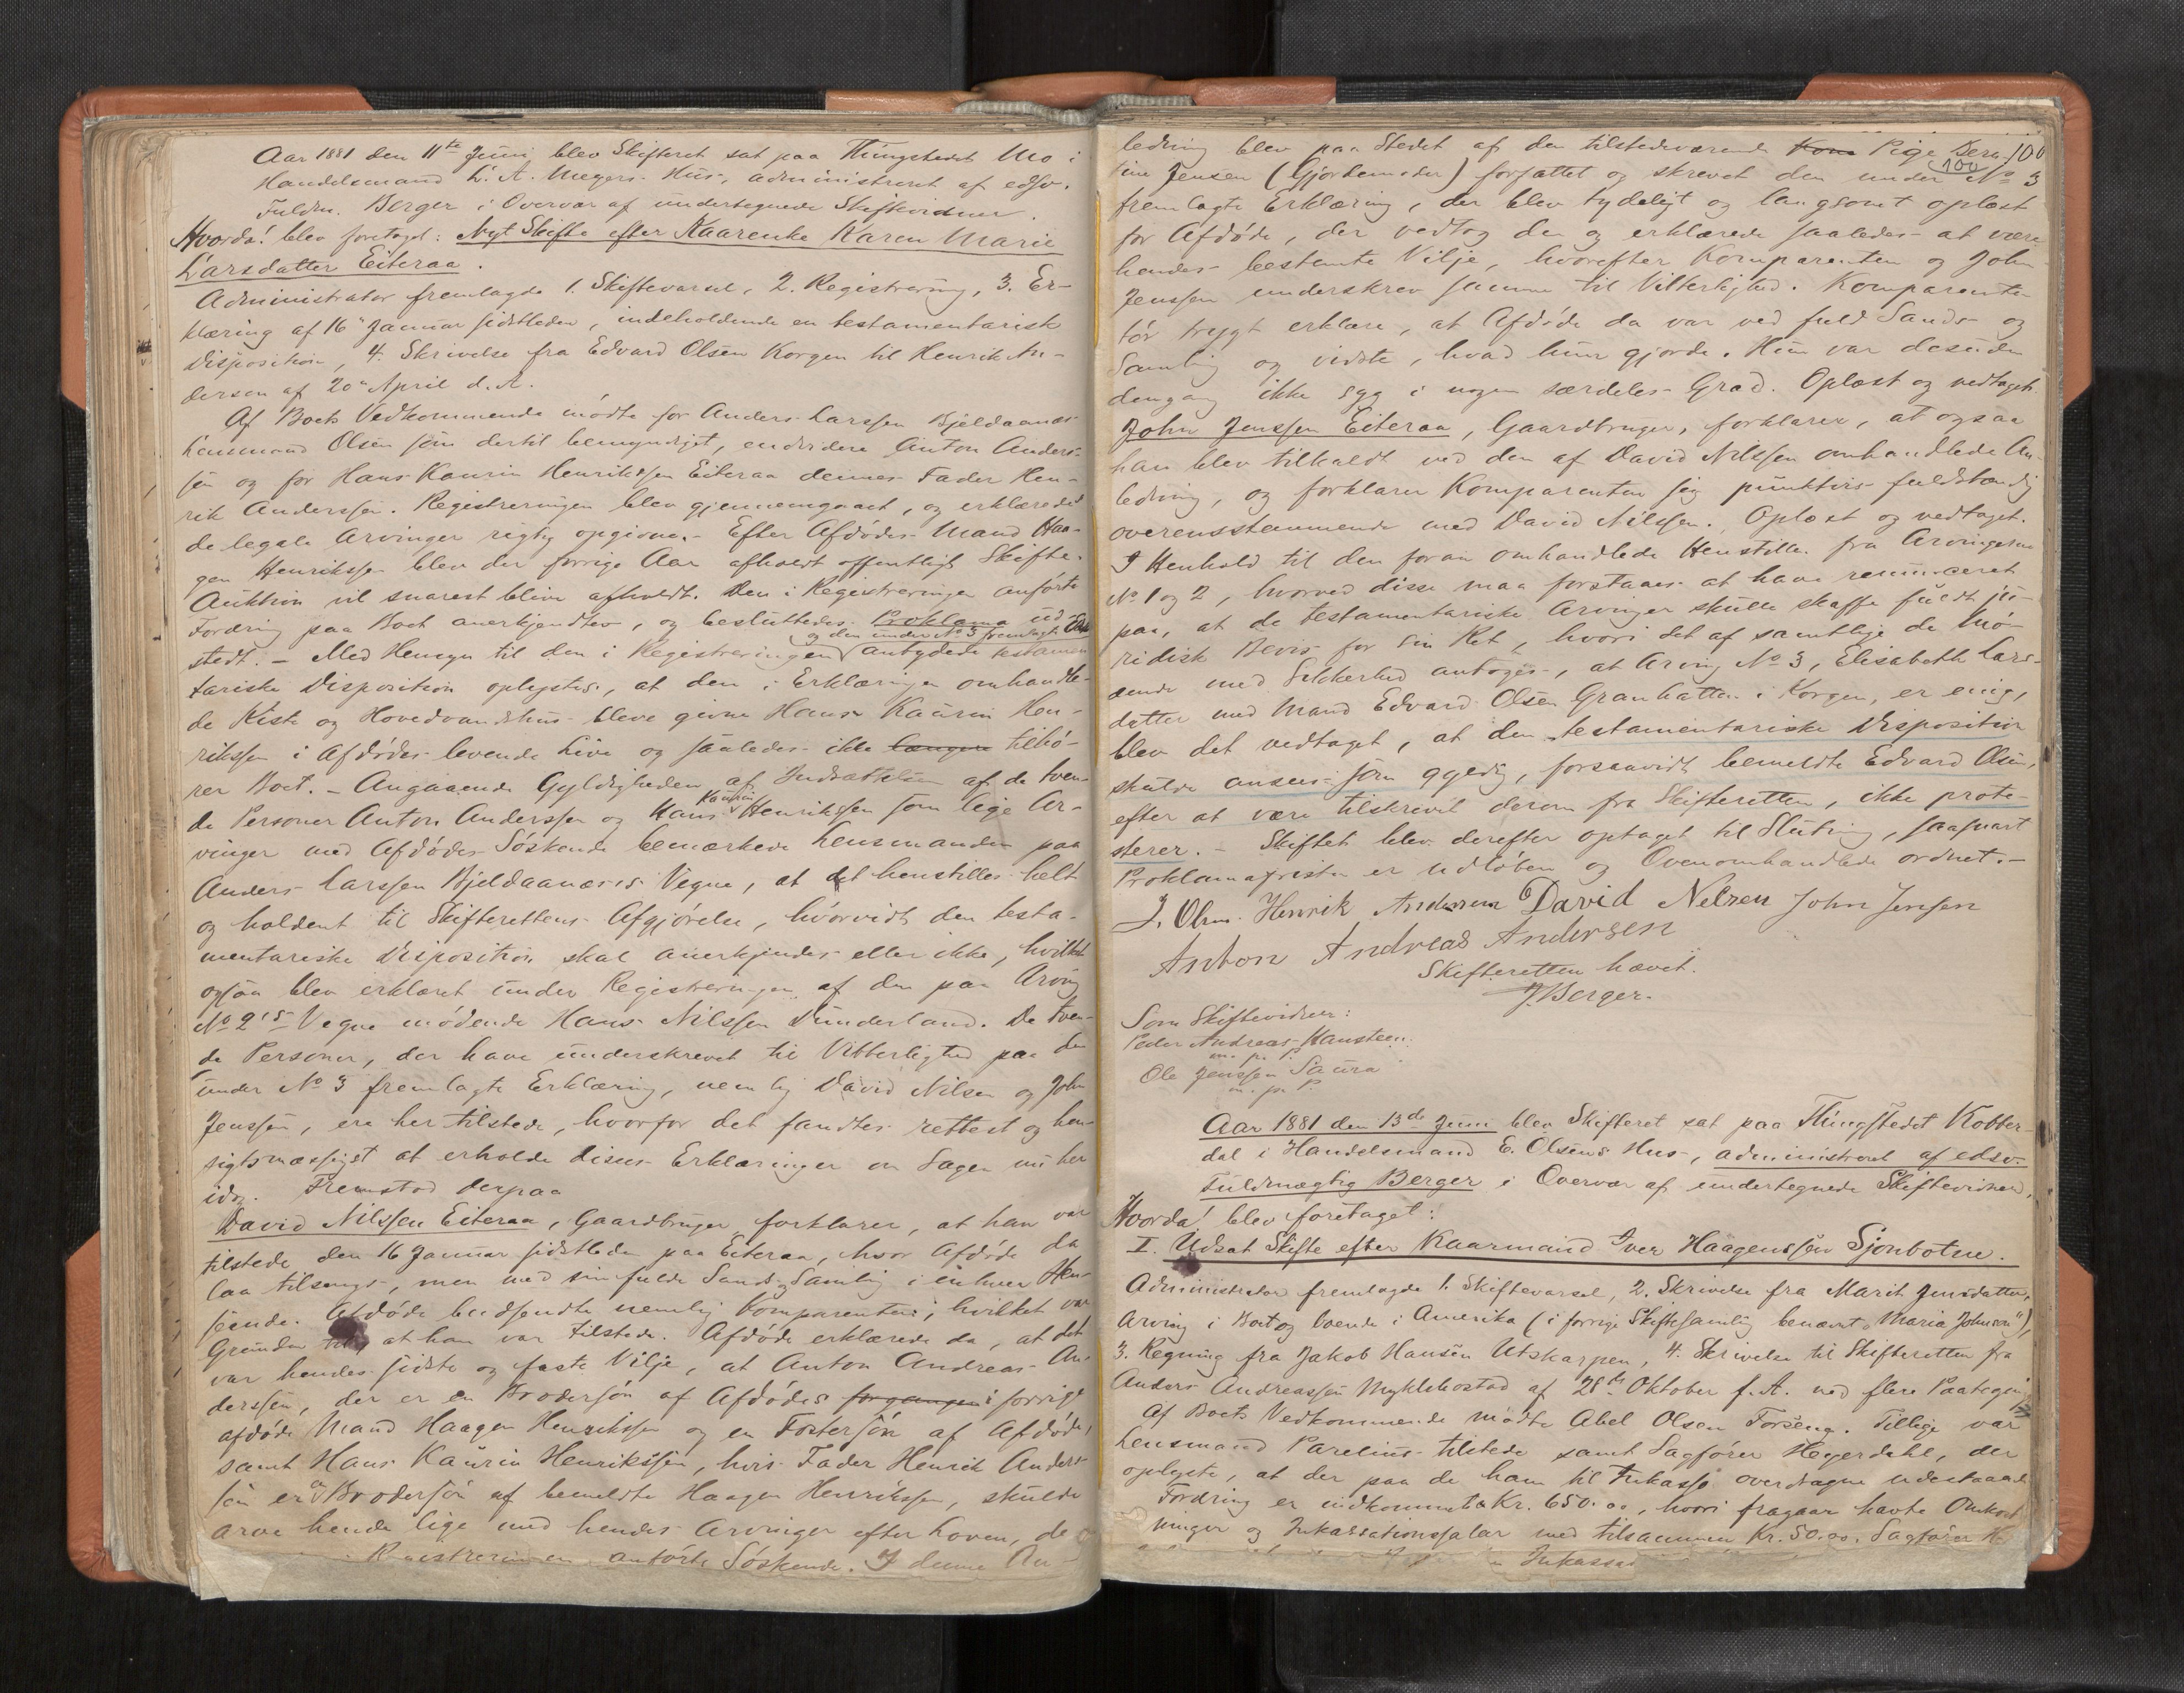 Aar 1881 den 11te Juni blev Skifteret sat paa Thingstedet Mo i
Handelsmand L. A. Meyers Hus, administreret af edsv.
Fuldm. Berger i Overvær af undertegnede Skiftevidner.
Hvorda! blev foretaget: Nyt Skifte efter Kaarenke Karen Marie
Larsdatter Eiteraa.
Administrator fremlagde 1. Skiftevarsel, 2. Registrering, 3. Er-
klæring af 16de Januar sidstleden, indeholdende en testamentarisk
Disposition, 4. Skrivelse fra Edvard Olsen Korgen til Henrik An-
dersen af 20de April d. A.
Af Boets Vedkommende mødte for Anders Larssen Bjeldaanæs
Lensmand Olsen som dertil bemyndiget, endvidere Anton Anders-
sen og for Hans Kaurin Henrikssen Eiteraa dennes Fader Hen-
rik Anderssen. Registreringen blev gjennemgaaet, og erklæredes
de legale Arvinger rigtig opgivne. - Efter Afdødes Mand Haa-
gen Henrikssen blev der forrige Aar afholdt offentligt Skifte.
Auktion vil snarest blive afholdt. Den i Registreringen anførte
Fordring paa Boet anerkjendtes, og besluttedes Proklama ud-
og den under No 3 fremlagte Erkl.
stedt. - Med Hensyn til den i Registreringen antydede testamen
tariske Disposition oplystes, at den i Erklæringen omhandle-
de Kiste og Hovedvandshus bleve givne Hans Kaurin Hen-
rikssen i Afdødes levende Live og saaledes ikke længere tilhø-
rer Boet. - Angaaende Gyldigheden af Indsættelsen af de tven-
Kaurin
de Personer Anton Anderssen og Hans Henrikssen som lige Ar-
vinger med Afdødes Søskende bemærkede Lensmanden paa
Anders Larssen Bjeldaanæs's Vegne, at det henstilles helt
og holdent til Skifterettens Afgjørelse, hvorvidt den testa-
mentariske Disposition skal anerkjendes eller ikke, hvilket
ogsaa blev erklæret under Registreringen af den paa Arving
No 2's Vegne mødende Hans Nilssen Dunderland. De tven-
de Personer, der have underskrevet til Vitterlighed paa den
under No 3 fremlagte Erklæring, nemlig David Nilsen og John
Jenssen, ere her tilstede, hvorfor det fandtes rettest og hen-
sigtsmæssigst at erholde disses Erklæringer om Sagen nu her
idag. Fremstod derpaa
David Nilssen Eiteraa, Gaardbruger, forklarer, at han var
tilstede den 16 Januar sidstleden paa Eiteraa, hvor Afdøde da
laa tilsengs, men med sin fulde Sands og Samling i enhver Hen-
seende. Afdøde budsendte nemlig Komparenten, hvilket var
Grunden til, at han var tilstede. Afdøde erklærede da, at det
var hendes sidste og faste Vilje, at Anton Andreas An-
derssen, der er en Brodersøn af Afdødes forgangen i forrige
afdøde Mand Haagen Henrikssen og en Fostersøn af Afdøde,
samt Hans Kaurin Henrikssen, hvis Fader Henrik Anders-
sen er Brodersøn af bemeldte Haagen Henrikssen, skulde
arve hende lige med hendes Arvinger efter Loven, de
Registreringen anførte Søskende. I denne An-
ledning blev paa Stedet af den tilstedeværende Kone Pige Bern- 100
100
tine Jensen (Gjordemoder) forfattet og skrevet den under No 3
fremlagte Erklæring, der blev tydeligt og langsomt oplæst
for Afdøde, der vedtog den og erklærede saaledes at være
hendes bestemte Vilje, hvorefter Komparenten og John
Jenssen underskrev samme til Vitterlighed. Komparenten
tør trygt erklære, at Afdøde da var ved fuld Sands og
Samling og vidste, hvad hun gjorde. Hun var desuden
dengang ikke syg i nogen særdeles Grad. Oplæst og vedtaget.
John Jenssen Eiteraa, Gaardbruger, forklarer, at ogsaa
han blev tilkaldt ved den af David Nilssen omhandlede An-
ledning, og forklarer Komparenten sig punktvis fuldstændig
overensstemmende med David Nilssen. Oplæst og vedtaget.
I Henhold til den foran omhandlede Henstillen fra Arvingerne
No 1 og 2, hvorved disse maa forstaaes at have renunceret
paa, at de testamentariske Arvinger skulle skaffe fuldt ju-
ridisk Bevis for sin Ret, hvori det af samtlige de Mø-
dende med Sikkerhed antoges, at Arving No 3, Elisabeth Lars-
datter med Mand Edvard Olsen Granhatten i Korgen, er enig,
blev det vedtaget, at den testamentariske Disposition
skulde ansees som gyldig, forsaavidt bemeldte Edvard Olsen,
efter at være tilskrevet derom fra Skifteretten, ikke prote-
sterer. - Skiftet blev derefter optaget til Slutning, saasnart
Proklamafristen er udløben og Ovenomhandlede ordnet. -
J. Olsen Henrik Andersen David Nelsen John Jensen
Anton Andreas Andersen
Skifteretten hævet.
J. Berger.
Som Skiftevidner:
Peder Andreas Hansteen
m. p. P.
Ole Jenssen Saura
m. p. P.
Aar 1881 den 13de Juni blev Skifteret sat paa Thingstedet Kobber-
dal i Handelsmand E. Olsens Hus, administreret af edsv.
Fuldmægtig Berger i Overvær af undertegnede Skiftevidner,
Hvorda! blev foretaget:
I. Udsat Skifte efter Kaarmand Iver Haagenssen Sjonbotne.
Administrator fremlagde 1. Skiftevarsel, 2. Skrivelse fra Marit Jensdatter,
Arving i Boet og boende i Amerika (i forrige Skiftesamling benævnt "Maria Johnson"),
3. Regning fra Jakob Hansen Utskarpen, 4. Skrivelse til Skifteretten fra
Anders Andreassen Myklebostad af 28de Oktober f. A. med flere Paategn.
Af Boets Vedkommende mødte Abel Olsen Forseng. Tillige var
Lensmand Parelius tilstede samt Sagfører Hegerdahl, der
oplyste, at der paa de ham til Inkasso overdragne udestaaende
Fordring er indkommet Kr. 650.00, hvori fragaar havte Omkost
ninger og Inkassationssalar med tilsammen Kr. 50.00. Sagfører
Inkassa